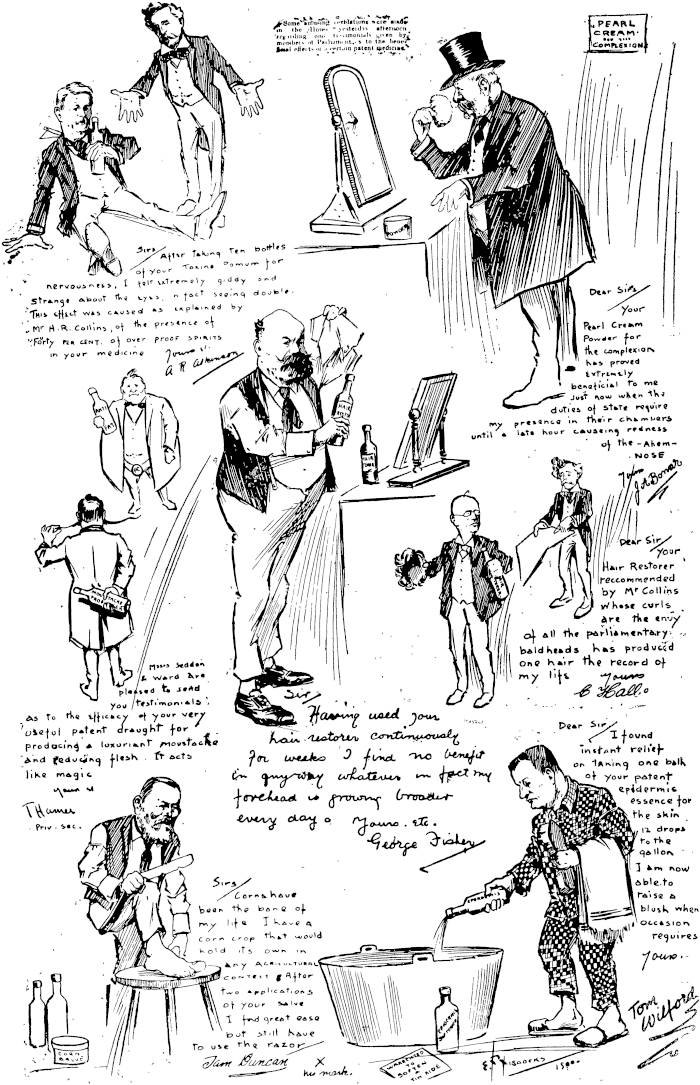 Some amusing revelations were made
in the House yesterday afternoon
regarding some testimonials given by
members of Parliament, as to the bene-
ficial effects of a certain patent medicine.
PEARL
CREAM
FOR THE
COMPLEXION
POWDER
Sirs/ After Taking Ten bottles
of your Tonine Pomum for
nervousness, I felt extremely giddy and
Strange about the eyes, in fact seeing double.
This effect was caused as explained by
Mr H.R. Collins, of the presence of
"Forty PER CENT. of over proof spirits
in your medicine
Yours
A R Atkinson
Dear Sirs/
Your
Pearl Cream
Powder for
the complexion
has proved
Extremely
beneficial to me
Just now when the
duties of State require
my presence in their chambers
until a late hour causeing redness
of the - Ahem -
NOSE
Yours
J.A. Bonar
ANTI
FAT
HAIR
TONIC
Dear Sir/
Your
Hair Restorer
reccommended
by Mr Collins
whose curls
are the envy
of all the parliamentary
baldheads has produced
one hair the record of
my life Yours
C Hall.
Messrs Seddon
& Ward are
pleased to send
you testimonials
as to the efficacy of your very
useful patent draught for
producing a luxuriant moustache
and reducing flesh. It acts
like magic
Yours
T Hamer
Priv. Sec.
Sir/
Having used your
hair restorer continuously
for weeks I find no benefit
in anyway whatever in fact my
forehead is growing broader
every day. Yours. etc.
George Fisher
Dear Sir/
I found
instant relief
on Taking one bath
of your patent
epidermis
essence for
the skin.
12 drops
to the
gallon
I am now
able to
raise a
blush when
occasion
requires
Yours..
Tom
Wilford
Sirs/
Corns have
been the bane of
my life I have a
corn crop that would
hold its own in
any AGRICULTURAL
CONTEST. After
two applications
of your salve
I find great ease
but still have
to use the razor
Tam Duncan X
his mark.
CORN
SALVE
EPIDERMIS
WARRANTED
TO
SOFTEN
A
TIN HIDE